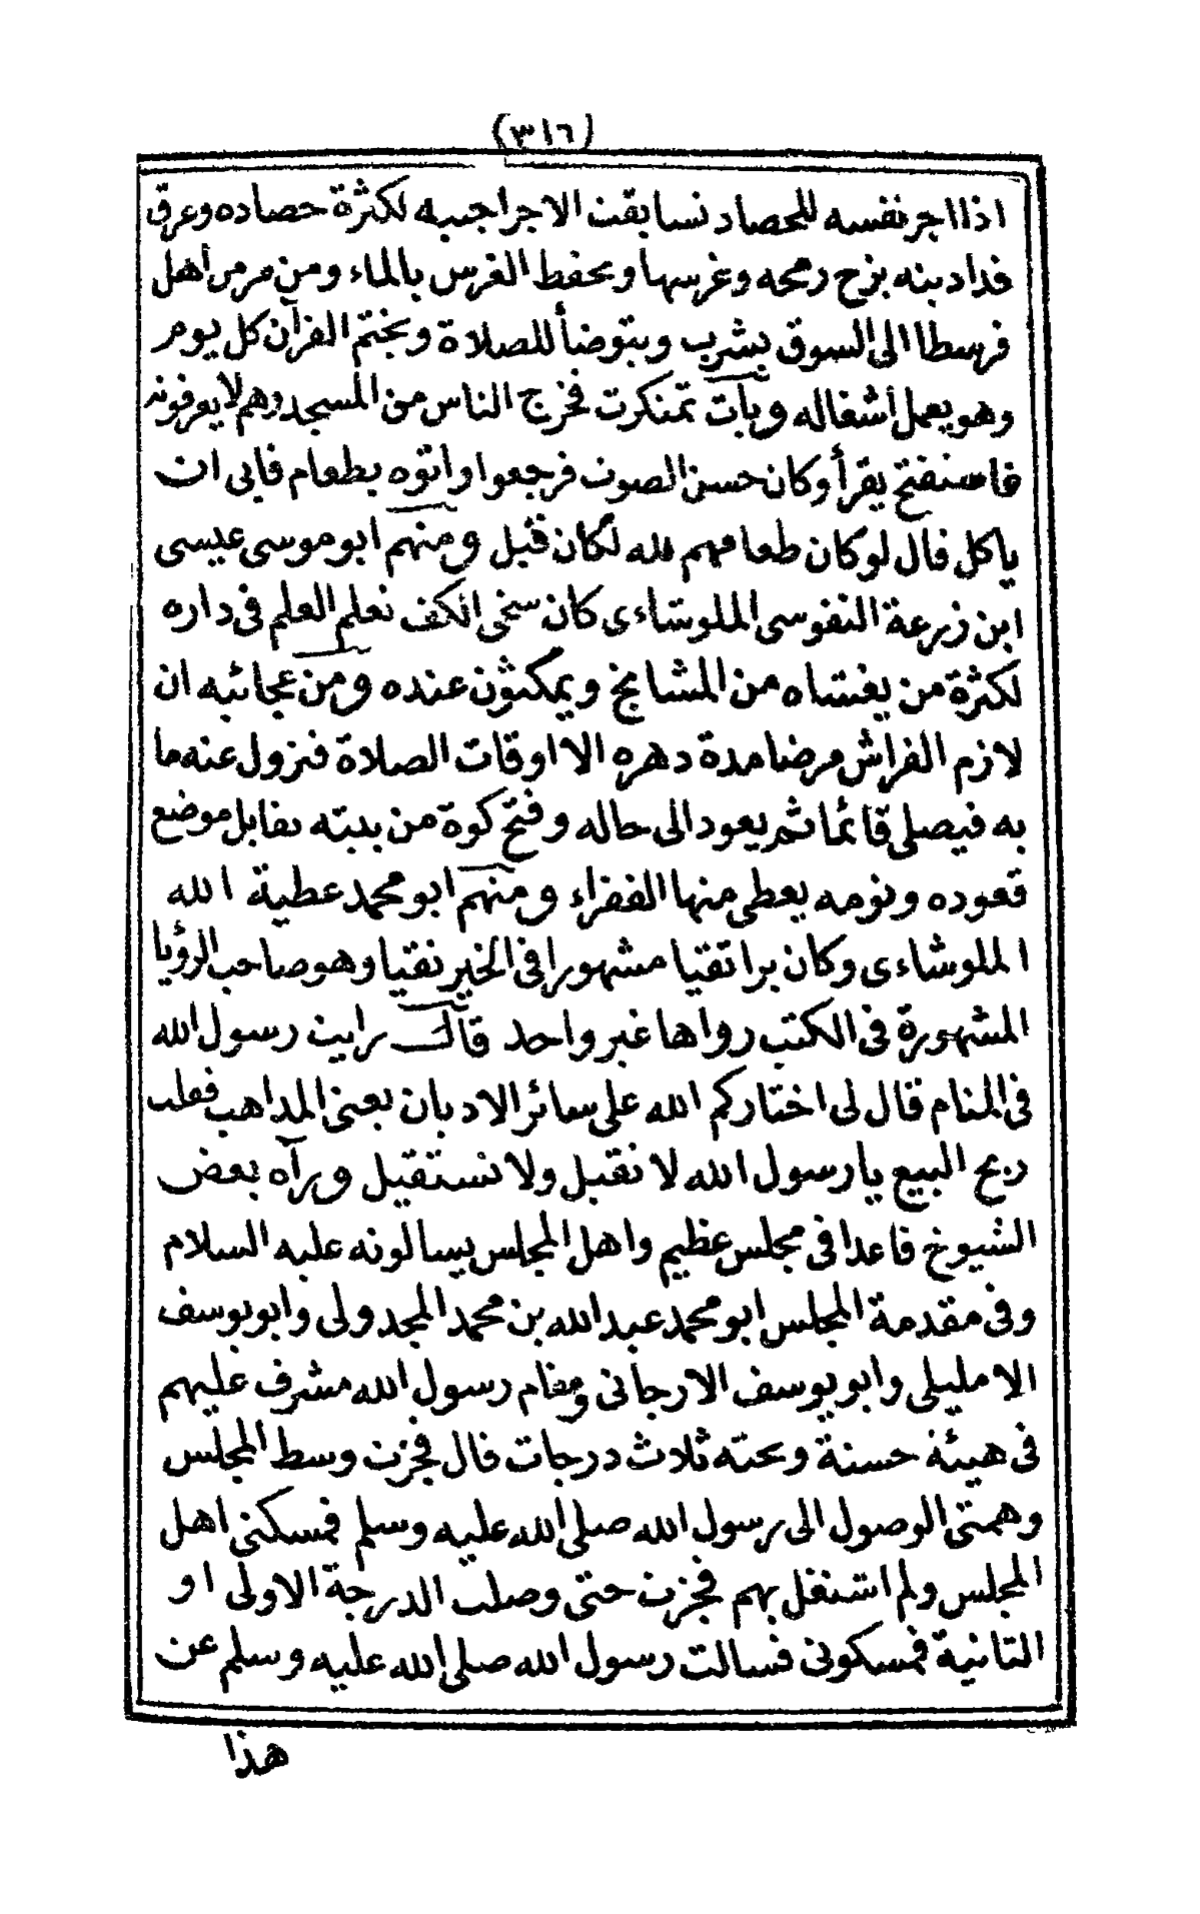 (٣١٦)
اذا اجر نفسه للحصاد تسابقت الاجراجيبه لكثرة حصاده وعرق
فدادينه بزج رمحه وغرسها ويحفظ الغرس بالماء ومن مرمن أهل
فرسطا الى السوق يشرب ويتوضأ للصلاة ويختم القرآن كل يوم
وهو يعمل أشغاله وبات تمنكرت فخرج الناس من المسجد وهم لا يعرفونه
فاستفتح يقرأ وكان حسن الصوت فرجعوا واتوه بطعام فابى ان
ياكل قال لوكان طعامهم لله لكان قبل ومنهم ابو موسى عيسى
ابن زرعة النفوسى الملوشاءى كان سخى الكف تعلم العلم فى داره
لكثرة من يغشاه من المشايخ ويمكثون عنده ومن عجائبه ان
لازم الفراش مرضا مدة دهره الا اوقات الصلاة فنزول عنه ما
به فيصلى قائما ثم يعود الى حاله وفتح كوة من بيته تقابل موضع
قعوده ونومه يعطى منها الفقراء ومنهم ابو محمد عطية الله
الملوشاءى وكان برا تقيا مشهورا فى الخير نقيا وهو صاحب الرؤيا
المشهورة فى الكتب رواها غير واحد قال رايت رسول الله
فى المنام قال لى اختاركم الله على سائر الاديان يعنى المذاهب فقلت
ربح البيع يا رسول الله لا نقبل ولا نستقيل ورآه بعض
الشيوخ قاعدا فى مجلس عظيم واهل المجلس يسالونه عليه السلام
وفى مقدمة المجلس ابو محمد عبد الله بن محمد المجدولى وابو يوسف
الامليلى وابو يوسف الارجانى ومقام رسول الله مشرف عليهم
فى هيئة حسنة وتحته ثلاث درجات قال فجزت وسط المجلس
وهمتى الوصول الى رسول الله صلى الله عليه وسلم فمسكنى اهل
المجلس ولم اشتغل بهم فجزت حتى وصلت الدرجة الاولى او
الثانية فمسكونى فسالت رسول الله صلى الله عليه وسلم عن
هذا